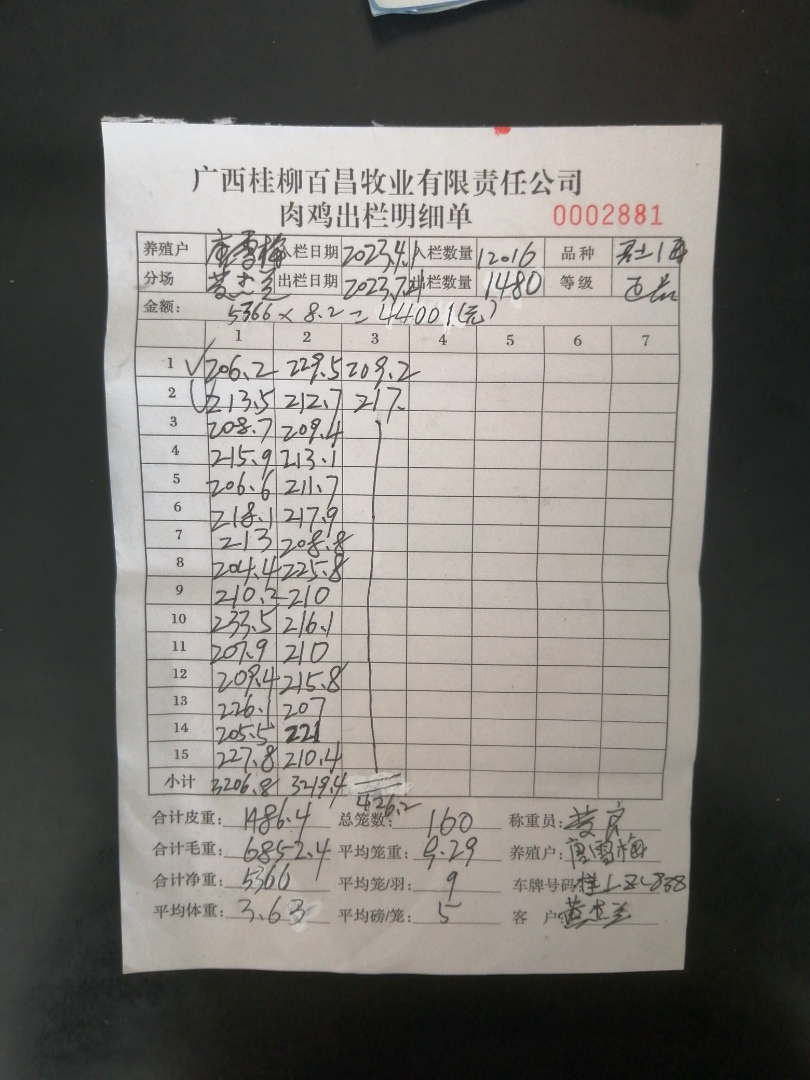 广西桂柳百昌牧业有限责任公司
肉鸡出栏明细单 0002881
养殖户 唐雪梅 入栏日期 2023.4.1 入栏数量 12016 品种
分场 出栏日期 2023.7.21 出栏数量 1480 等级
金额: 5366×8.2=44001(元)
1 2 3 4 5 6 7
1 √206.2 229.5 209.2
2 213.5 212.7 217.
3 208.7 209.4
4 215.9 213.1
5 206.6 211.7
6 218.1 217.9
7 213 208.8
8 204.4 225.8
9 210.2 210
10 233.5 216.1
11 207.9 210
12 209.4 215.8
13 226.1 207
14 205.5 221
15 227.8 210.4
小计 3206.8 3219.4 426.2
合计皮重: 1486.4 总笼数: 160 称重员:
合计毛重: 6852.4 平均笼重: 9.29 养殖户: 唐雪梅
合计净重: 5366 平均笼/羽: 9 车牌号码:
平均体重: 3.63 平均磅/笼: 5 客 户